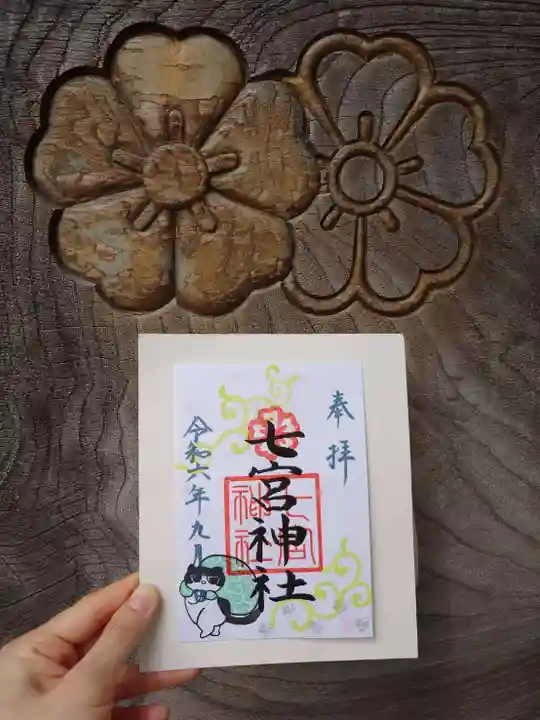 奉拝
七宮神社
七宮
神社
令和六年九月